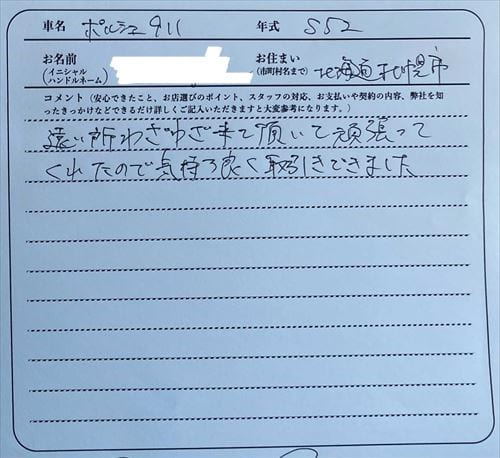 車名 ポルシェ911 年式 S52
お名前 (イニシャル ハンドルネーム) お住まい (市町村名まで) 北海道札幌市
コメント(安心できたこと、お店選びのポイント、スタッフの対応、お支払いや契約の内容、弊社を知
ったきっかけなどできるだけ詳しくご記入いただきますと大変参考になります。)
遠い所わざわざ来て頂いて頑張って
くれたので気持ち良く取引きできました